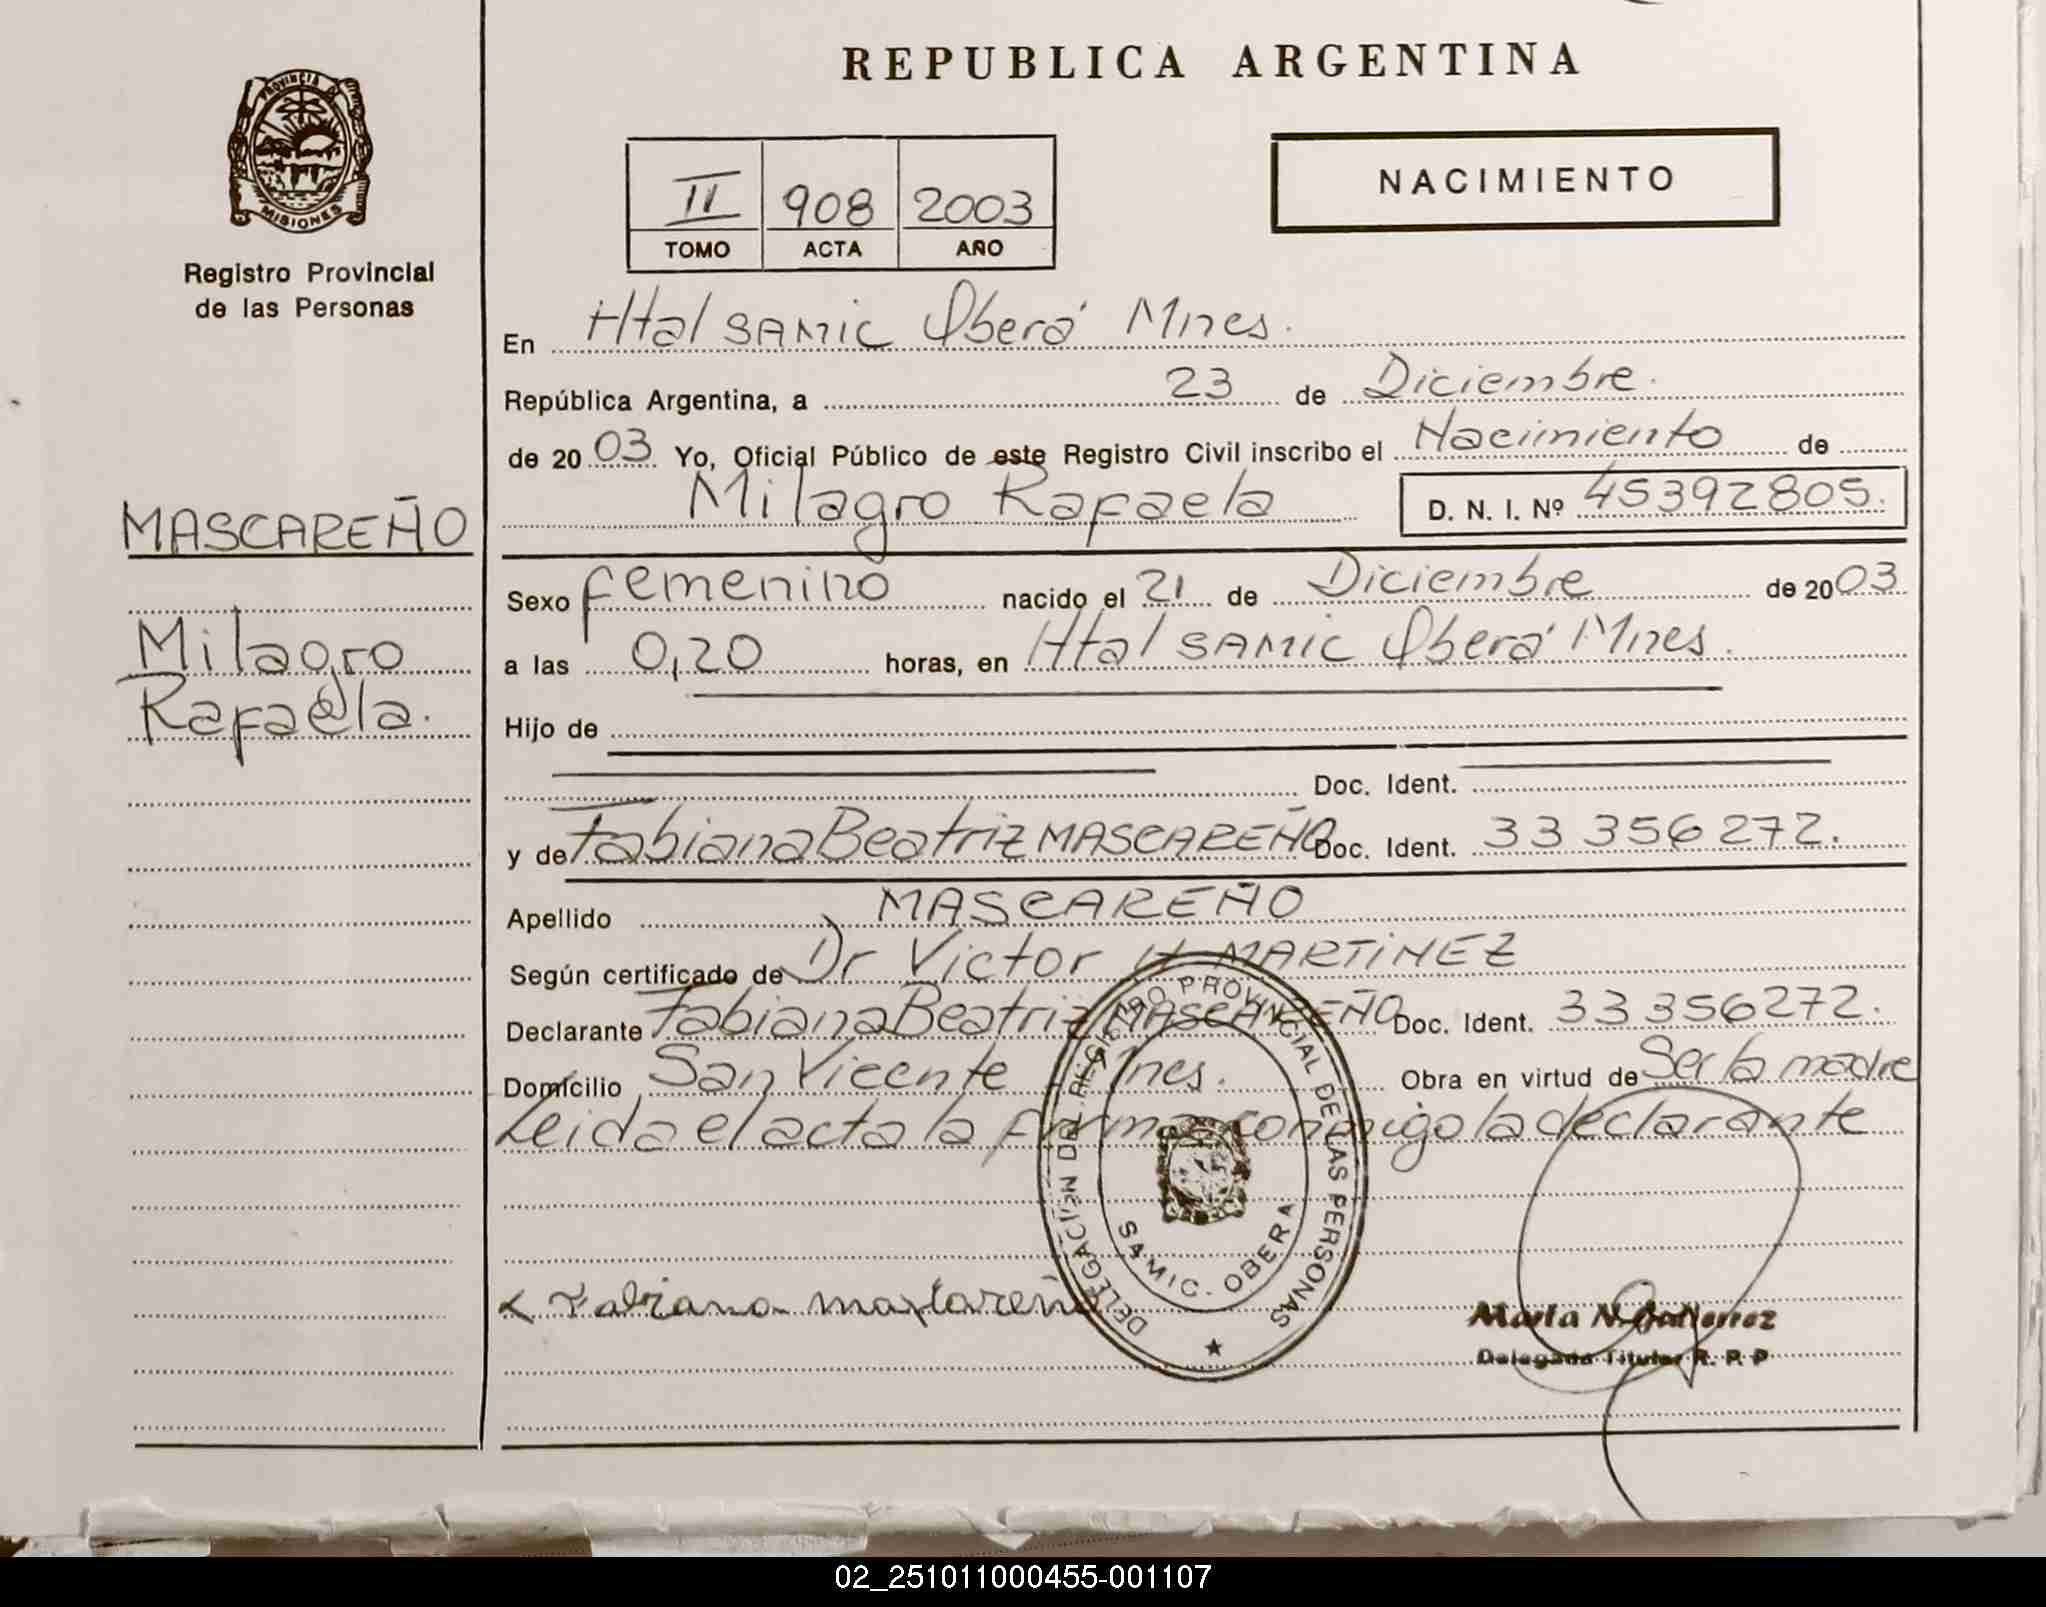 REPUBLICA ARGENTINA
PROVINCIA DE
MISIONES
Registro Provincial
de las Personas
II 908 2003
TOMO ACTA AÑO
NACIMIENTO
En Htal SAMIC Oberá Mnes.
República Argentina, a 23 de Diciembre.
de 2003 Yo, Oficial Público de este Registro Civil inscribo el Nacimiento de
Milagro Rafaela D. N. I. Nº 45392805.
MASCAREÑO
Milagro
Rafaela.
Sexo femenino nacido el 21 de Diciembre de 2003
a las 0,20 horas, en Htal SAMIC Oberá Mnes.
Hijo de
Doc. Ident.
y de Fabiana Beatriz MASCAREÑO Doc. Ident. 33 356272.
Apellido MASCAREÑO
Según certificado de Dr Victor H MARTINEZ
Declarante Fabiana Beatriz MASCAREÑO Doc. Ident. 33 356272.
Domicilio San Vicente Mnes. Obra en virtud de Ser la madre
Leida el acta la firma conmigo la declarante
DELEGACIÓN DEL REGISTRO PROVINCIAL DE LAS PERSONAS
SAMIC. OBERA
Fabiana mascareño
Marta N. Gutierrez
Delegada Titular R. P. P
02_251011000455-001107